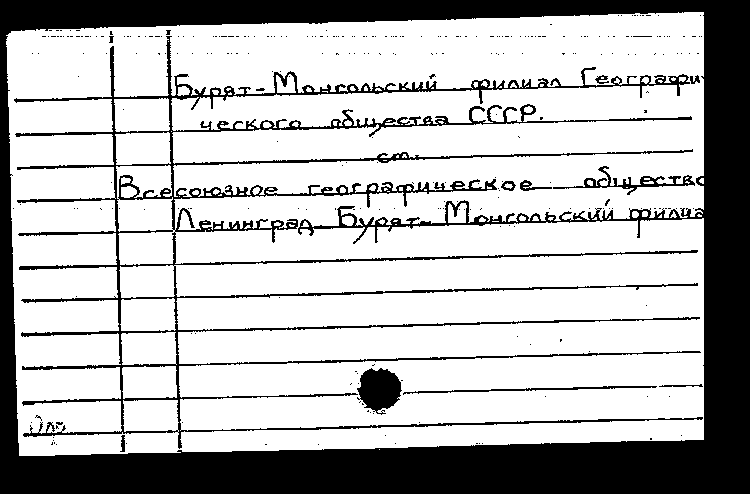 Бурят-Монгольский филиал Географи
ческого общества СССР.
см.
Всесоюзное географическое общество
Ленинград. Бурят-Монгольский филиа